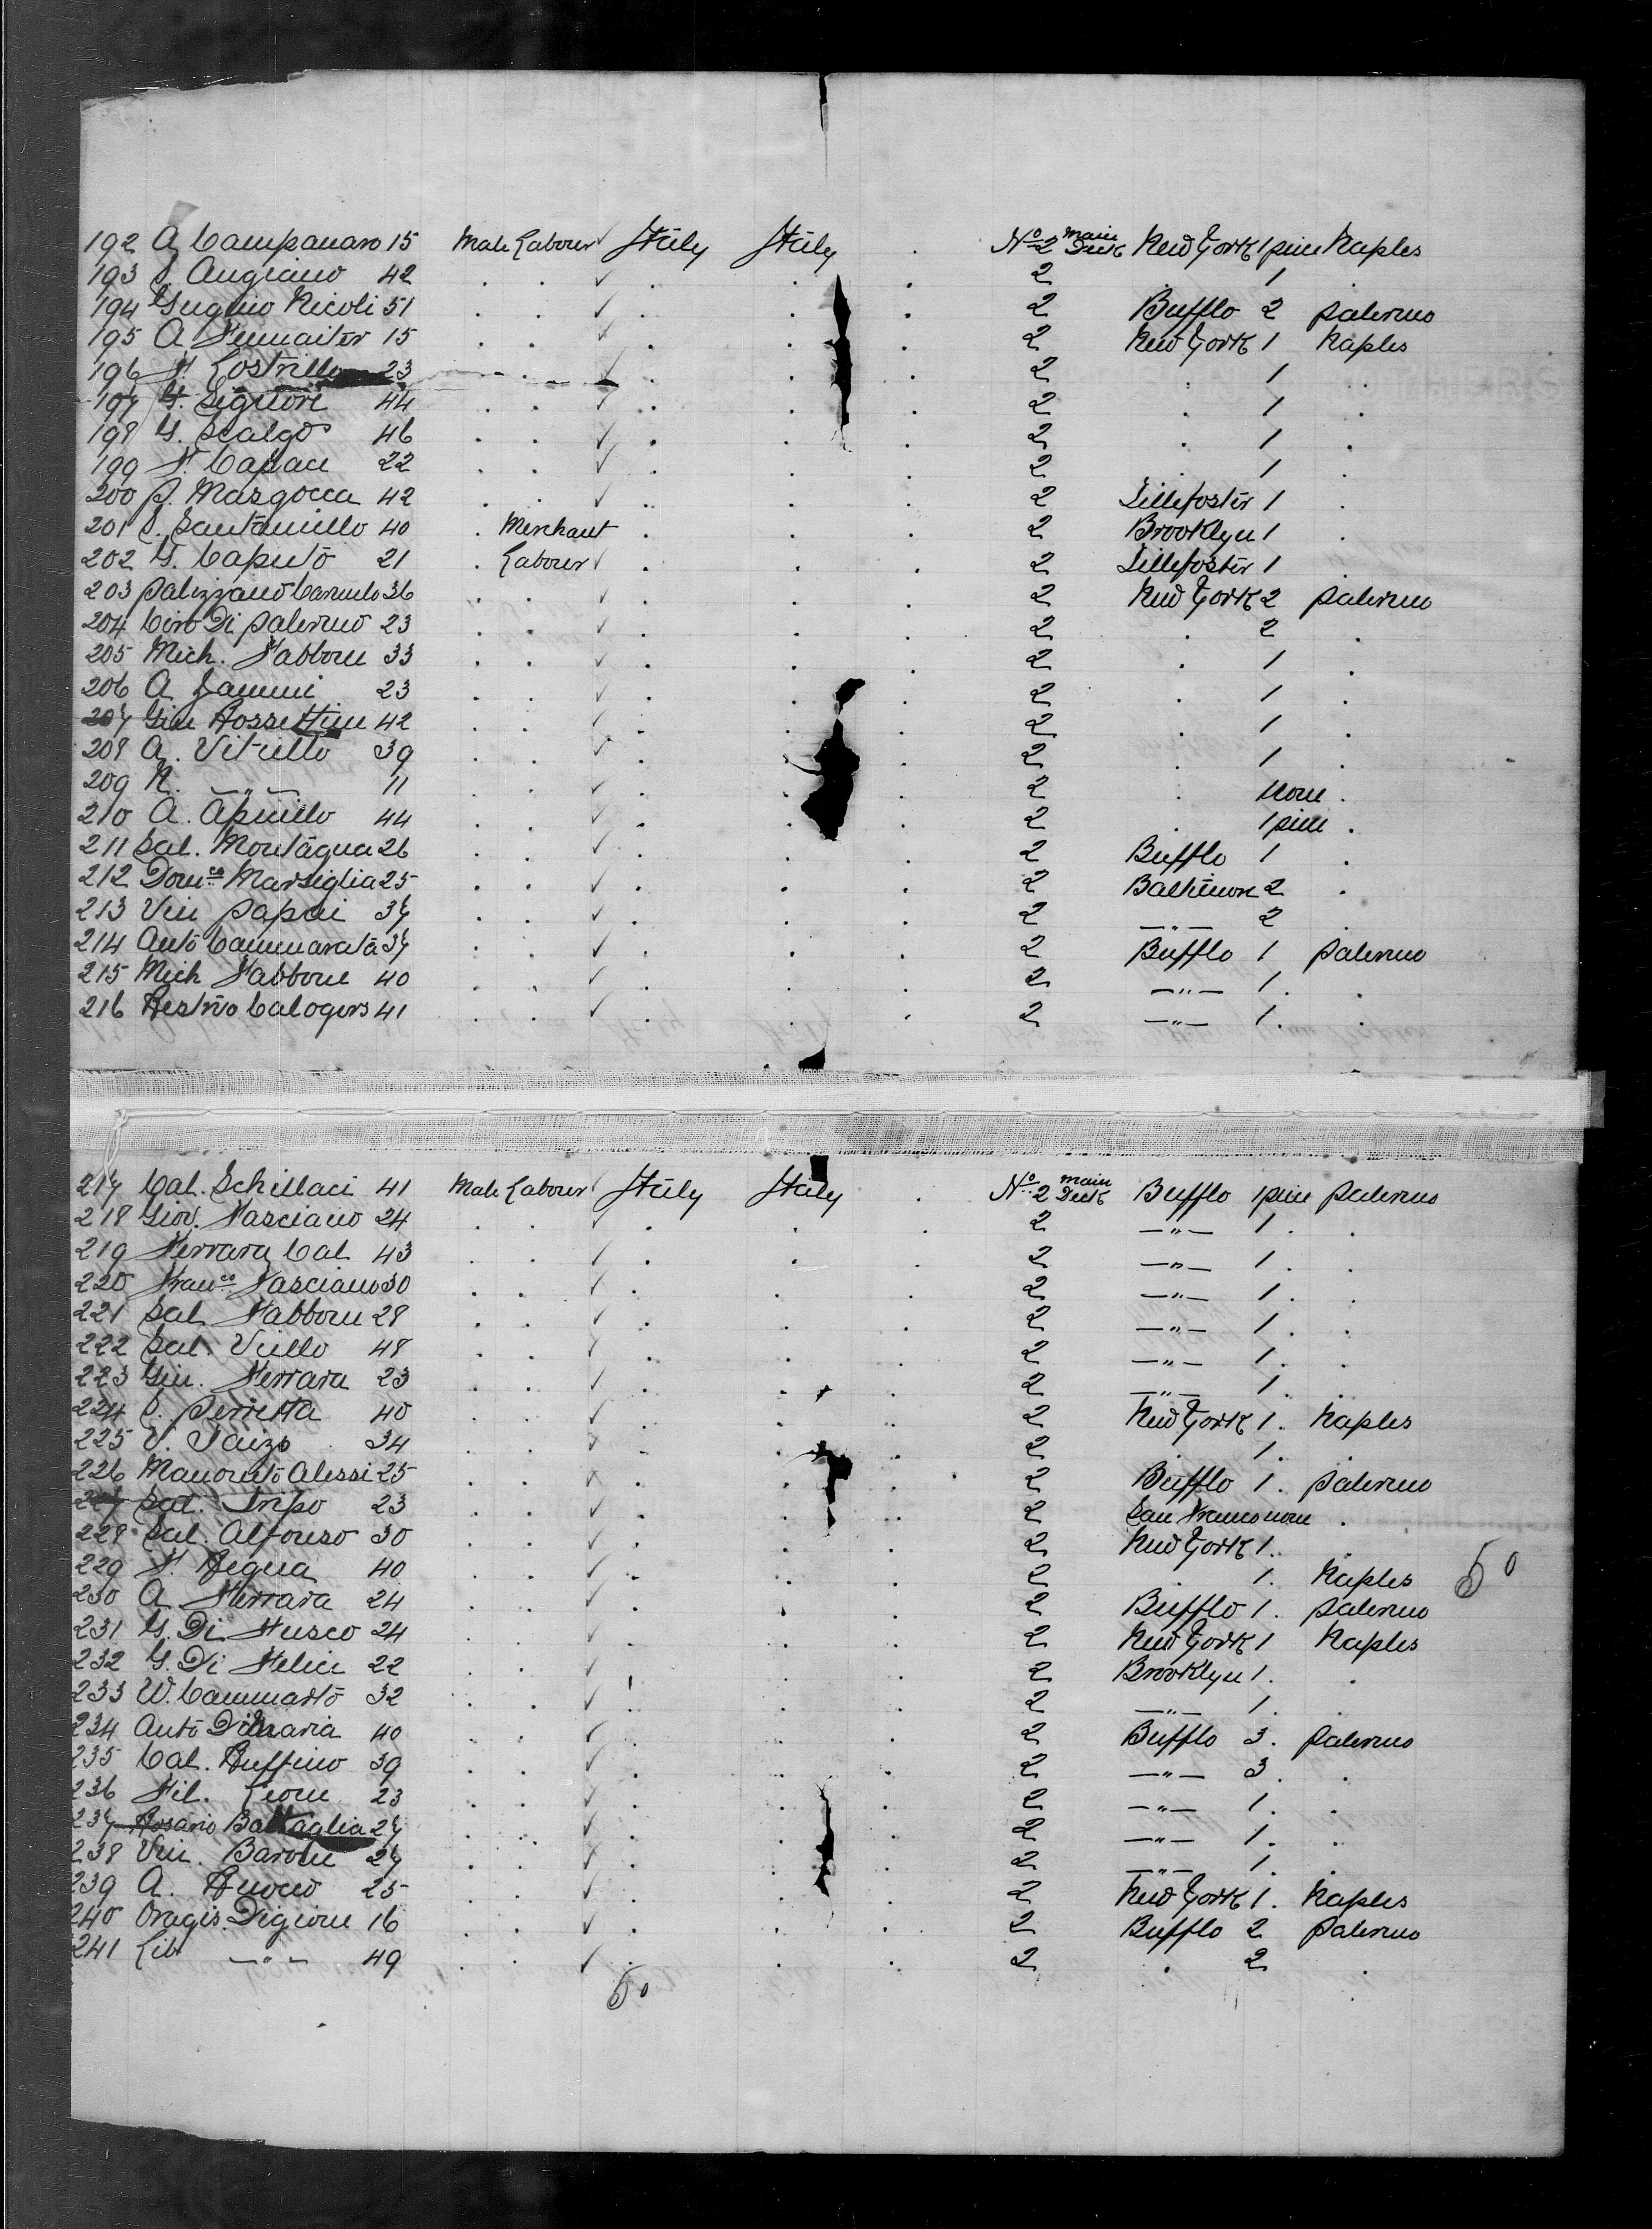 192 A Campanaro 15 Male Labour ✓ Italy Italy . No 2 Main Deck New York 1 piece Naples
193 S. Angrisno 42 . . ✓ . . . 2 . 1 .
194 Nicoli 51 . . ✓ . . . 2 Bufflo 2 Palermo
195 A 15 . . ✓ . . . 2 New York 1 Naples
196 F. Costrillo 23 . . ✓ . . . 2 . 1 .
197 F. Signore 44 . . ✓ . . . 2 . 1 .
198 G. Scalgo 46 . . ✓ . . . 2 . 1 .
199 F. Capace 22 . . ✓ . . . 2 . 1 .
200 P. Mazgocca 42 . . ✓ . . . 2 1 .
201 S. Santaniello 40 . Merchant . . . 2 Brooklyn 1 .
202 G. Caputo 21 . Labour ✓ . . . 2 1 .
203 Palizzano Carmelo 36 . . ✓ . . . 2 New York 2 Palermo
204 Ciro Di Palermo 23 . . ✓ . . . 2 . 2 .
205 Mich. Fabbone 33 . . ✓ . . . 2 . 1 .
206 A 23 . . ✓ . . . 2 . 1 .
207 Giu Rossettini 42 . . ✓ . . . 2 . 1 .
208 A. Vitiello 39 . . ✓ . . . 2 . 1 .
209 N. —"— 11 . . ✓ . . . 2 . none .
210 A. Apiello 44 . . ✓ . . . 2 . 1 piece .
211 Sal. Montagna 26 . . ✓ . . . 2 Bufflo 1 .
212 Domco Marsiglia 25 . . ✓ . . . 2 Baltimore 2 .
213 Vin Papai 37 . . ✓ . . . 2 —"— 2 .
214 Anto Cammarata 37 . . ✓ . . . 2 Bufflo 1 Palermo
215 Mich Fabbone 40 . . ✓ . . . 2 —"— 1 . .
216 Restivo Calogero 41 . . ✓ . . . 2 —"— 1 . .
217 Cal. Schillaci 41 Male Labour ✓ Italy Italy . No 2 Main Deck Bufflo 1 piece Palermo
218 Giov. Fasciano 24 . . ✓ . . . 2 —"— 1 . .
219 Ferrara Cal 43 . . ✓ . . . 2 —"— 1 . .
220 Franco Fasciano 30 . . ✓ . . . 2 —"— 1 . .
221 Sal Fabbone 28 . . ✓ . . . 2 —"— 1 . .
222 Sal. Viello 48 . . ✓ . . . 2 —"— 1 . .
223 Giu. Ferrara 23 . . ✓ . . . 2 —"— 1 . .
224 S. Perretta 40 . . ✓ . . . 2 New York 1 . Naples
225 V. 34 . . ✓ . . . 2 . 1 . .
226 Alessi 25 . . ✓ . . . 2 Bufflo 1 . Palermo
227 Sal. Tripo 23 . . ✓ . . . 2 San Franco none .
228 Sal. Alfonso 30 . . ✓ . . . 2 New York 1 . .
229 F. Regna 40 . . ✓ . . . 2 . 1 . Naples 50
230 A Ferrara 24 . . ✓ . . . 2 Bufflo 1 . Palermo
231 G. Di Fusco 24 . . ✓ . . . 2 New York 1 Naples
232 G. Di Felice 22 . . ✓ . . . 2 Brooklyn 1 . .
233 W. Cammarto 32 . . ✓ . . . 2 —"— 1 . .
234 Anto Di Maria 40 . . ✓ . . . 2 Bufflo 3 . Palermo
235 Cal. Ruffino 39 . . ✓ . . . 2 —"— 3 . .
236 Fil. Leone 23 . . ✓ . . . 2 —"— 1 . .
237 Rosario Battaglia 27 . . ✓ . . . 2 —"— 1 . .
238 Vin. Barone 27 . . ✓ . . . 2 —"— 1 . .
239 A. Ruocco 25 . . ✓ . . . 2 New York 1 . Naples
240 Digione 16 . . ✓ . . . 2 Bufflo 2 Palermo
241 Lib —"— 49 . . ✓ . . . 2 . 2 .
50